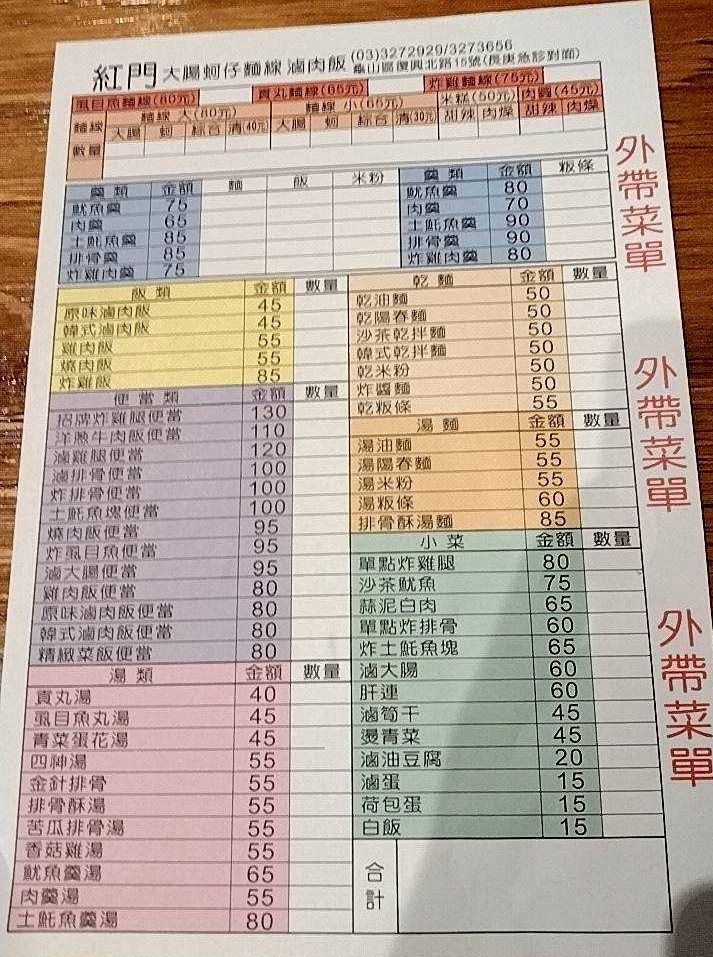 紅門 大腸蚵仔麵線 滷肉飯 (03)3272929/3273656
龜山區復興北路15號(長庚急診對面)
虱目魚麵線(80元) 貢丸麵線(65元) 炸雞麵線(75元)
麵線 麵線 大(80元) 麵線 小(65元) 米糕(50元) 肉醬(45元)
大腸 蚵 綜合 清(40元) 大腸 蚵 綜合 清(30元) 甜辣 肉燥 甜辣 肉燥
數量
羹類 金額 麵 飯 米粉 羹類 金額 粄條
魷魚羹 75 魷魚羹 80
肉羹 65 肉羹 70
土魠魚羹 85 土魠魚羹 90
排骨羹 85 排骨羹 90
炸雞肉羹 75 炸雞肉羹 80
飯類 金額 數量
原味滷肉飯 45
韓式滷肉飯 45
雞肉飯 55
燒肉飯 55
炸雞飯 85
便當類 金額 數量
招牌炸雞腿便當 130
洋蔥牛肉飯便當 110
滷雞腿便當 120
滷排骨便當 100
炸排骨便當 100
土魠魚塊便當 100
燒肉飯便當 95
炸虱目魚便當 95
滷大腸便當 95
雞肉飯便當 80
原味滷肉飯便當 80
韓式滷肉飯便當 80
精緻菜飯便當 80
湯類 金額 數量
貢丸湯 40
虱目魚丸湯 45
青菜蛋花湯 45
四神湯 55
金針排骨 55
排骨酥湯 55
苦瓜排骨湯 55
香菇雞湯 55
魷魚羹湯 65
肉羹湯 55
土魠魚羹湯 80
乾麵 金額 數量
乾油麵 50
乾陽春麵 50
沙茶乾拌麵 50
韓式乾拌麵 50
乾米粉 50
炸醬麵 50
乾粄條 55
湯麵 金額 數量
湯油麵 55
湯陽春麵 55
湯米粉 55
湯粄條 60
排骨酥湯麵 85
小菜 金額 數量
單點炸雞腿 80
沙茶魷魚 75
蒜泥白肉 65
單點炸排骨 60
炸土魠魚塊 65
滷大腸 60
肝連 60
滷筍干 45
燙青菜 45
滷油豆腐 20
滷蛋 15
荷包蛋 15
白飯 15
合計
外帶菜單
外帶菜單
外帶菜單